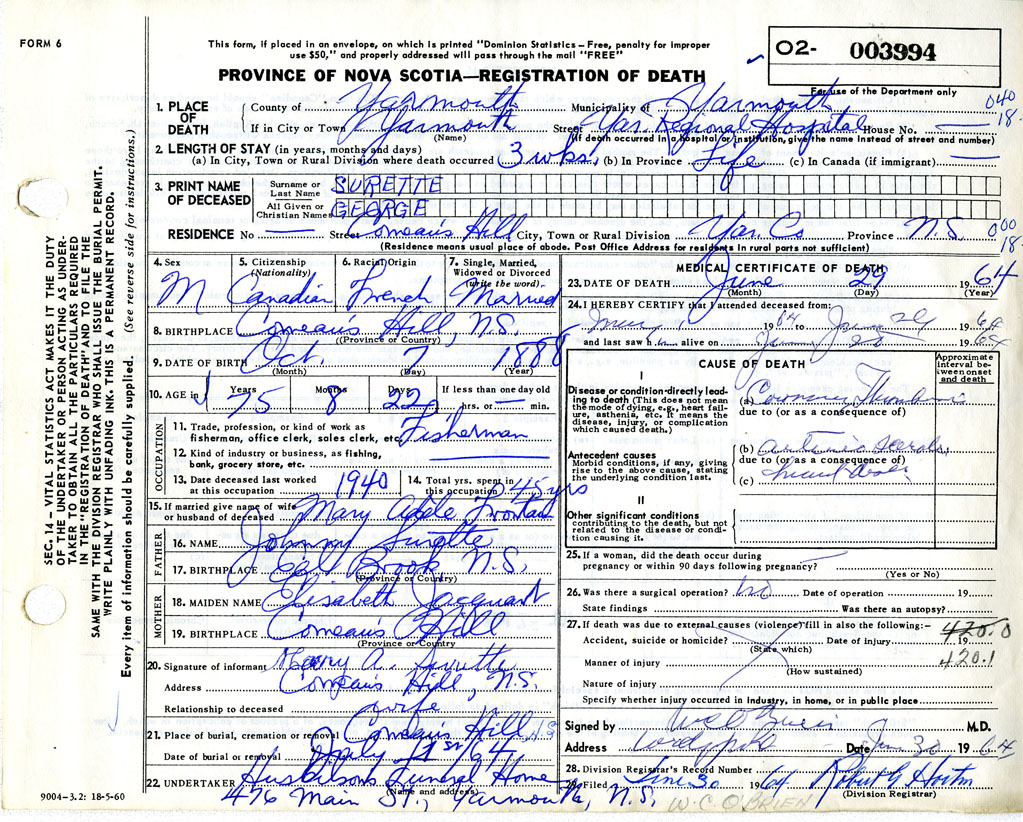 FORM 6
This form, if placed in an envelope, on which is printed "Dominion Statistics – Free, penalty for improper
use $50," and properly addressed will pass through the mail "FREE"
PROVINCE OF NOVA SCOTIA—REGISTRATION OF DEATH
02- 003994
For use of the Department only
1. PLACE OF DEATH
County of Yarmouth Municipality of Yarmouth 040
If in City or Town Yarmouth Street Yar. Regional Hospital House No. — 18-
(Name) (If death occurred in a hospital or institution, give the name instead of street and number)
2. LENGTH OF STAY (in years, months and days)
(a) In City, Town or Rural Division where death occurred 3 wks. (b) In Province Life (c) In Canada (if immigrant) —
3. PRINT NAME OF DECEASED
Surname or Last Name SURETTE
All Given or Christian Names GEORGE
RESIDENCE No — Street Comeau's Hill City, Town or Rural Division Yar. Co Province N.S. 000
18
(Residence means usual place of abode. Post Office Address for residents in rural parts not sufficient)
4. Sex M
5. Citizenship (Nationality) Canadian
6. Racial Origin French
7. Single, Married, Widowed or Divorced (write the word) Married
8. BIRTHPLACE Comeau's Hill, N.S.
(Province or Country)
9. DATE OF BIRTH Oct. 7 1888
(Month) (Day) (Year)
10. AGE in Years 75 Months 8 Days 22 If less than one day old hrs. or — min.
OCCUPATION
11. Trade, profession, or kind of work as
fisherman, office clerk, sales clerk, etc. Fisherman
12. Kind of industry or business, as fishing,
bank, grocery store, etc.
13. Date deceased last worked at this occupation 1940
14. Total yrs. spent in this occupation 45 yrs
15. If married give name of wife
or husband of deceased Mary Adele
FATHER
16. NAME Johnny Surette
17. BIRTHPLACE Eel Brook N.S.
(Province or Country)
MOTHER
18. MAIDEN NAME Elisabeth Jacquard
19. BIRTHPLACE Comeau's Hill
(Province or Country)
20. Signature of informant Mary A. Surette
Address Comeau's Hill, N.S.
Relationship to deceased wife
21. Place of burial, cremation or removal Comeau's Hill
Date of burial or removal July 1st/64
22. UNDERTAKER Huskilson's Funeral Home
(Name and address)
476 Main St., Yarmouth, N.S.
9004-3.2: 18-5-60
MEDICAL CERTIFICATE OF DEATH
23. DATE OF DEATH June 29 1964
(Month) (Day) (Year)
24. I HEREBY CERTIFY that I attended deceased from:
1964 to 1964
and last saw him alive on 1964
CAUSE OF DEATH
Approximate interval between onset and death
I
Disease or condition directly leading to death (This does not mean the mode of dying, e.g., heart failure, asthenia, etc. It means the disease, injury, or complication which caused death.)
(a) Coronary Thrombosis
due to (or as a consequence of)
Antecedent causes
Morbid conditions, if any, giving rise to the above cause, stating the underlying condition last.
(b)
due to (or as a consequence of)
(c)
II
Other significant conditions
contributing to the death, but not related to the disease or condition causing it.
25. If a woman, did the death occur during
pregnancy or within 90 days following pregnancy? —
(Yes or No)
26. Was there a surgical operation? no Date of operation 19
State findings Was there an autopsy?
27. If death was due to external causes (violence) fill in also the following:– 420.0
Accident, suicide or homicide? Date of injury 19
(State which) 420.1
Manner of injury
(How sustained)
Nature of injury
Specify whether injury occurred in industry, in home, or in public place
Signed by W C O'Brien M.D.
Address Date Jun 30 1964
28. Division Registrar's Record Number
29. Filed Jun 30 1964 Robert G
(Division Registrar)
W.C. O'BRIEN
SEC. 14 – VITAL STATISTICS ACT MAKES IT THE DUTY
OF THE UNDERTAKER OR PERSON ACTING AS UNDER-
TAKER TO OBTAIN ALL THE PARTICULARS REQUIRED
IN THE "REGISTRATION OF DEATH" AND TO FILE THE
SAME WITH THE DIVISION REGISTRAR WHO SHALL ISSUE THE BURIAL PERMIT.
WRITE PLAINLY WITH UNFADING INK. THIS IS A PERMANENT RECORD.
Every item of information should be carefully supplied. (See reverse side for instructions.)